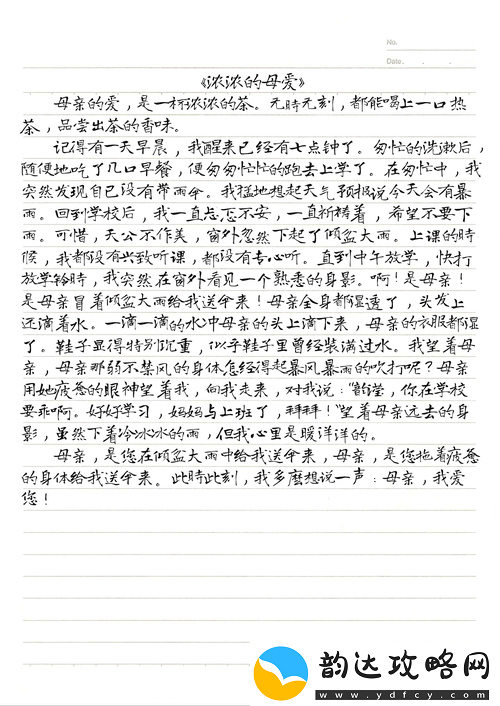 No.
Date. . .
《浓浓的母爱》
母亲的爱，是一杯浓浓的茶。无時无刻，都能喝上一口热
茶，品尝出茶的香味。
记得有一天早晨，我醒来已经有七点钟了。匆忙的洗漱后，
随便地吃了几口早餐，便匆匆忙忙的跑去上学了。在匆忙中，我
突然发现自己没有带雨伞。我猛地想起天气预报说今天会有暴
雨。回到学校后，我一直忐忑不安，一直祈祷着，希望不要下
雨。可惜，天公不作美，窗外忽然下起了倾盆大雨。上课的時
候，我都没有兴致听课，都没有专心听。直到中午放学，快打
放学铃時，我突然在窗外看见一个熟悉的身影。啊！是母亲！
是母亲冒着倾盆大雨给我送伞来！母亲全身都湿透了，头发上
还滴着水。一滴一滴的水冲母亲的头上滴下来，母亲的衣服都湿
了。鞋子显得特别沉重，似乎鞋子里曾经装满过水。我望着母
亲，母亲那弱不禁风的身体怎经得起暴风暴雨的吹打呢？母亲
用她疲惫的眼神望着我，向我走来，对我说：“韵莹，你在学校
要乖啊。好好学习，妈妈与上班了，拜拜！”望着母亲远去的身
影，虽然下着冷冰冰的雨，但我心里是暖洋洋的。
母亲，是您在倾盆大雨中给我送伞来，母亲，是您拖着疲惫
的身体给我送伞来。此時此刻，我多麽想说一声：母亲，我爱
您！
韵达攻略网
www.ydfcy.com